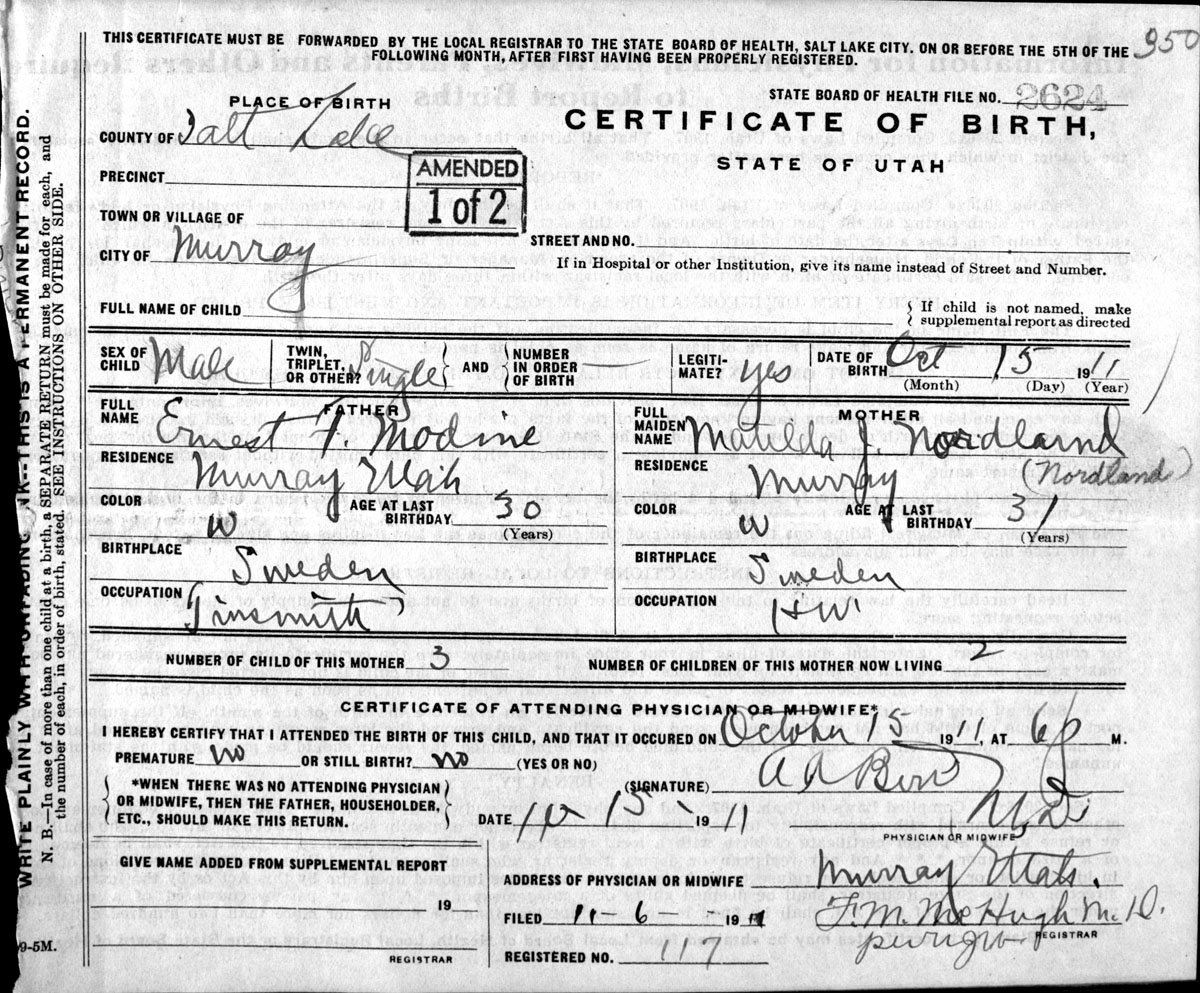 THIS CERTIFICATE MUST BE FORWARDED BY THE LOCAL REGISTRAR TO THE STATE BOARD OF HEALTH, SALT LAKE CITY. ON OR BEFORE THE 5TH OF THE
FOLLOWING MONTH, AFTER FIRST HAVING BEEN PROPERLY REGISTERED.
950
PLACE OF BIRTH
STATE BOARD OF HEALTH FILE NO. 2624
COUNTY OF Salt Lake
CERTIFICATE OF BIRTH,
STATE OF UTAH
AMENDED
1 of 2
PRECINCT
TOWN OR VILLAGE OF
CITY OF Murray
STREET AND NO.
If in Hospital or other Institution, give its name instead of Street and Number.
FULL NAME OF CHILD
If child is not named, make
supplemental report as directed
SEX OF CHILD Male
TWIN, TRIPLET, OR OTHER? Single
AND
NUMBER IN ORDER OF BIRTH
LEGITI-MATE? yes
DATE OF BIRTH Oct 15 1911
(Month) (Day) (Year)
FATHER
FULL NAME Ernest F. Modine
RESIDENCE Murray Utah
COLOR W AGE AT LAST BIRTHDAY 30
(Years)
BIRTHPLACE Sweden
OCCUPATION Tinsmith
MOTHER
FULL MAIDEN NAME Matilda J Nordland
(Nordland)
RESIDENCE Murray
COLOR W AGE AT LAST BIRTHDAY 31
(Years)
BIRTHPLACE Sweden
OCCUPATION HW
NUMBER OF CHILD OF THIS MOTHER 3 NUMBER OF CHILDREN OF THIS MOTHER NOW LIVING 2
CERTIFICATE OF ATTENDING PHYSICIAN OR MIDWIFE*
I HEREBY CERTIFY THAT I ATTENDED THE BIRTH OF THIS CHILD, AND THAT IT OCCURED ON October 15 1911, AT 6 P M.
PREMATURE no OR STILL BIRTH? no (YES OR NO)
*WHEN THERE WAS NO ATTENDING PHYSICIAN
OR MIDWIFE, THEN THE FATHER, HOUSEHOLDER,
ETC., SHOULD MAKE THIS RETURN.
(SIGNATURE)
DATE 10 15 1911
M.D.
PHYSICIAN OR MIDWIFE
GIVE NAME ADDED FROM SUPPLEMENTAL REPORT
19
REGISTRAR
ADDRESS OF PHYSICIAN OR MIDWIFE Murray Utah.
FILED 11-6- 1911 F. M. McHugh M.D.
REGISTRAR
REGISTERED NO. 117
WRITE PLAINLY WITH UNFADING INK--THIS IS A PERMANENT RECORD.
N. B.—In case of more than one child at a birth, a SEPARATE RETURN must be made for each, and
the number of each, in order of birth, stated. SEE INSTRUCTIONS ON OTHER SIDE.
9-5M.